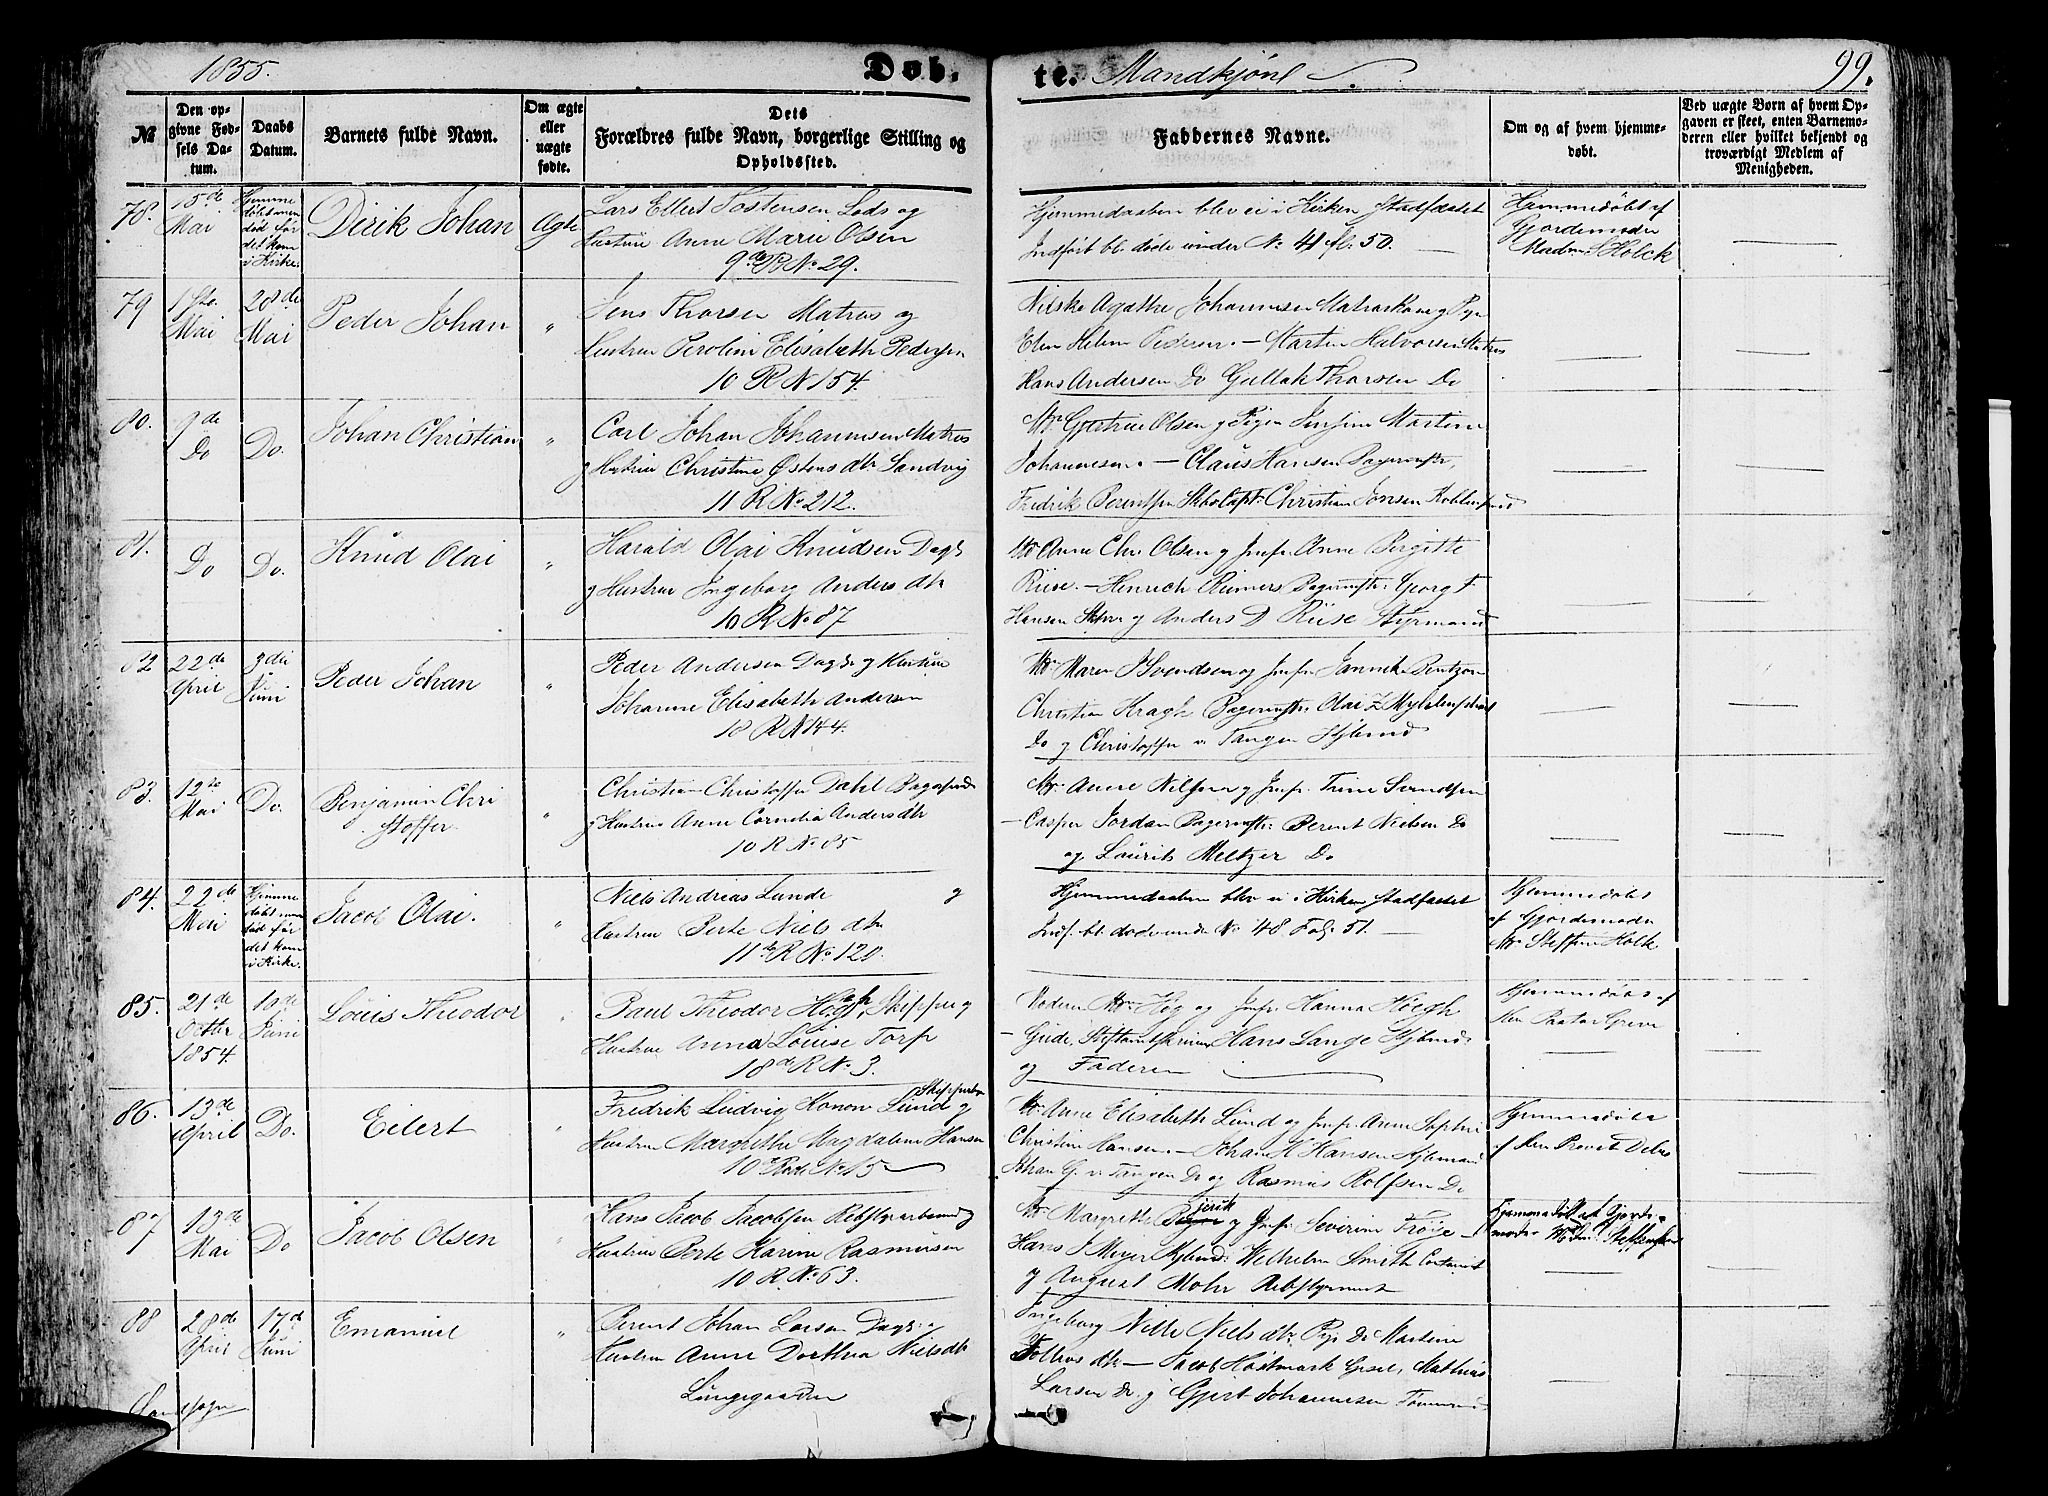 1855.
Døb-
te. Mandkjøn
99.
№
Den op-
givne Fød-
sels Da-
tum.
Daabs
Datum.
Barnets fulde Navn.
Om ægte
eller
uægte
fødte.
Dets
Forældres fulde Navn, borgerlige Stilling og
Opholdssted.
Faddernes Navne.
Om og af hvem hjemme-
døbt.
Ved uægte Børn af hvem Op-
gaven er skeet, enten Barnemo-
deren eller hvilket bekjendt og
troværdigt Medlem af
Menigheden.
78.
15de
Mai
Hjemme
døbt men
død før
det kom
i Kirke.
Dirik Johan
Ægte
Lars Ellert Tostensen Lods og
Hustrue Anne Marie Olsen
9de R No 29.
Hjemmedaaben blev ei i Kirken Stadfæstet
Indført bl. døde under No 41 fl. 50.
Hjemmedøbt af
Gjordemoder
Madm S Holck
79
1ste
Mai
28de
Mai
Peder Johan
"
Jens Thorsen Matros og
Hustrue Peroline Elisabeth Pedersen
10 R N 154.
Nilske Agathe Johannesen Matroskone og Pige
Elen Helene Pedersen. – Martin Halvorsen Matros
Hans Andersen Do Gullak Thorsen Do
80.
9de
Do
Do.
Johan Christian
"
Carl Johan Johannesen Matros
og Hustrue Christine Østens dtr Sandvig
11 R No 212.
Md Gjertrue Olsen og Pigen Jensine Martine
Johannesen. – Claus Hansen Bagermstr,
Fredrik Berentsen Skbs Capt: Christian Jonsen
81.
Do
Do.
Knud Olai
"
Harald Olai Knudsen Dags
og Hustrue Ingeborg Anders dtr
10 R No 87
Md Anne Chr. Olsen og Jmfr. Anne Bergitte
Riise. – Henrich Reimers Bagermstr: Georg F
Hansen og Anders D Riise Styrmand
82
22de
April
3die
Juni
Peder Johan
"
Peder Andersen Dags og Hustrue
Johanne Elisabeth Andersen
10 R N 144.
Md Maren Svendsen og Jmfr. Jannike Bentzon
Christian Kragh Bagermstr, Olai
Do og Christoffer v. Tangen Kjbmd
83.
12te
Mai
Do.
Benjamin Chri
stoffer
"
Christian Christoffer Dahl Bagersvend
og Hustrue Anne Cornelia Anders dtr
10 R No 85
Md Anne Nilsen og Jmfr. Trine Svendsen
– Casper Jordan Bagermstr: Berent Nielsen Do
og Laurits Meltzer Do
84.
22de
Mai
Hjemme
døbt men
død før
det kom
i Kirke.
Jacob Olai.
"
Niels Andreas Lunde og
Hustrue Berte Niels dtr
11te R No 120.
Hjemmedaaben blev ei i Kirken Stadfæstet
Indf. bl. døde under No 48 Fol. 51.
Hjemmedøbt
af Gjordemoder
Md Steffine Holck
85.
21de
Octbr
1854.
10de
Juni
Louis Theodor
"
Paul Theodor Høegh, Skipper og
Hustrue Anna Louise Torp
18de R No 3.
Moderen Md Høg og Jmfr. Hanna Høegh
– Gude, Stiftamtskriver Hans Lange Kjbmd
og Faderen
Hjemmedøbt af
Her Pastor Greve
86.
13de
April
Do.
Eilert
"
Fredrik Ludvig Konow Lund Skipperborg og
Hustrue Margrethe Magdalene Hansen
10de Rode No 15
Md Anne Elisabeth Lund og Jmfr. Anne Sophie
Christine Hansen. – Johan H Hansen Kjbmand
Johan G. v. Tangen Do og Rasmus Rolfsen Do
Hjemmedøbt
af Her Provst
87
13de
Mai
Do
Jacob Olsen
"
Hans Jacob Jacobsen Rebslagerarbeider og
Hustrue Berte Karine Rasmusen
10 R. No 63.
Md Margrethe Gjerik og Jmfr. Severine Frøise –
Hans J Meyer Kjbmd: Wilhelm Smith Contorist
og August Mohr Rebslagermest
Hjemmedøbt af Gjorde-
moder
88
28de
April
17de
Juni
Emanuel
"
Berent Johan Larsen Dags: og
Hustrue Anne Dorthea Nielsdtr
Lungegaarden
Landsogn
Ingeborg Nille Nielsdtr Pige Do Martine
Tollevs dtr – Jacob Holtmark Gesel, Mathias
Larsen Do. og Gjert Johannesen Tømmermd